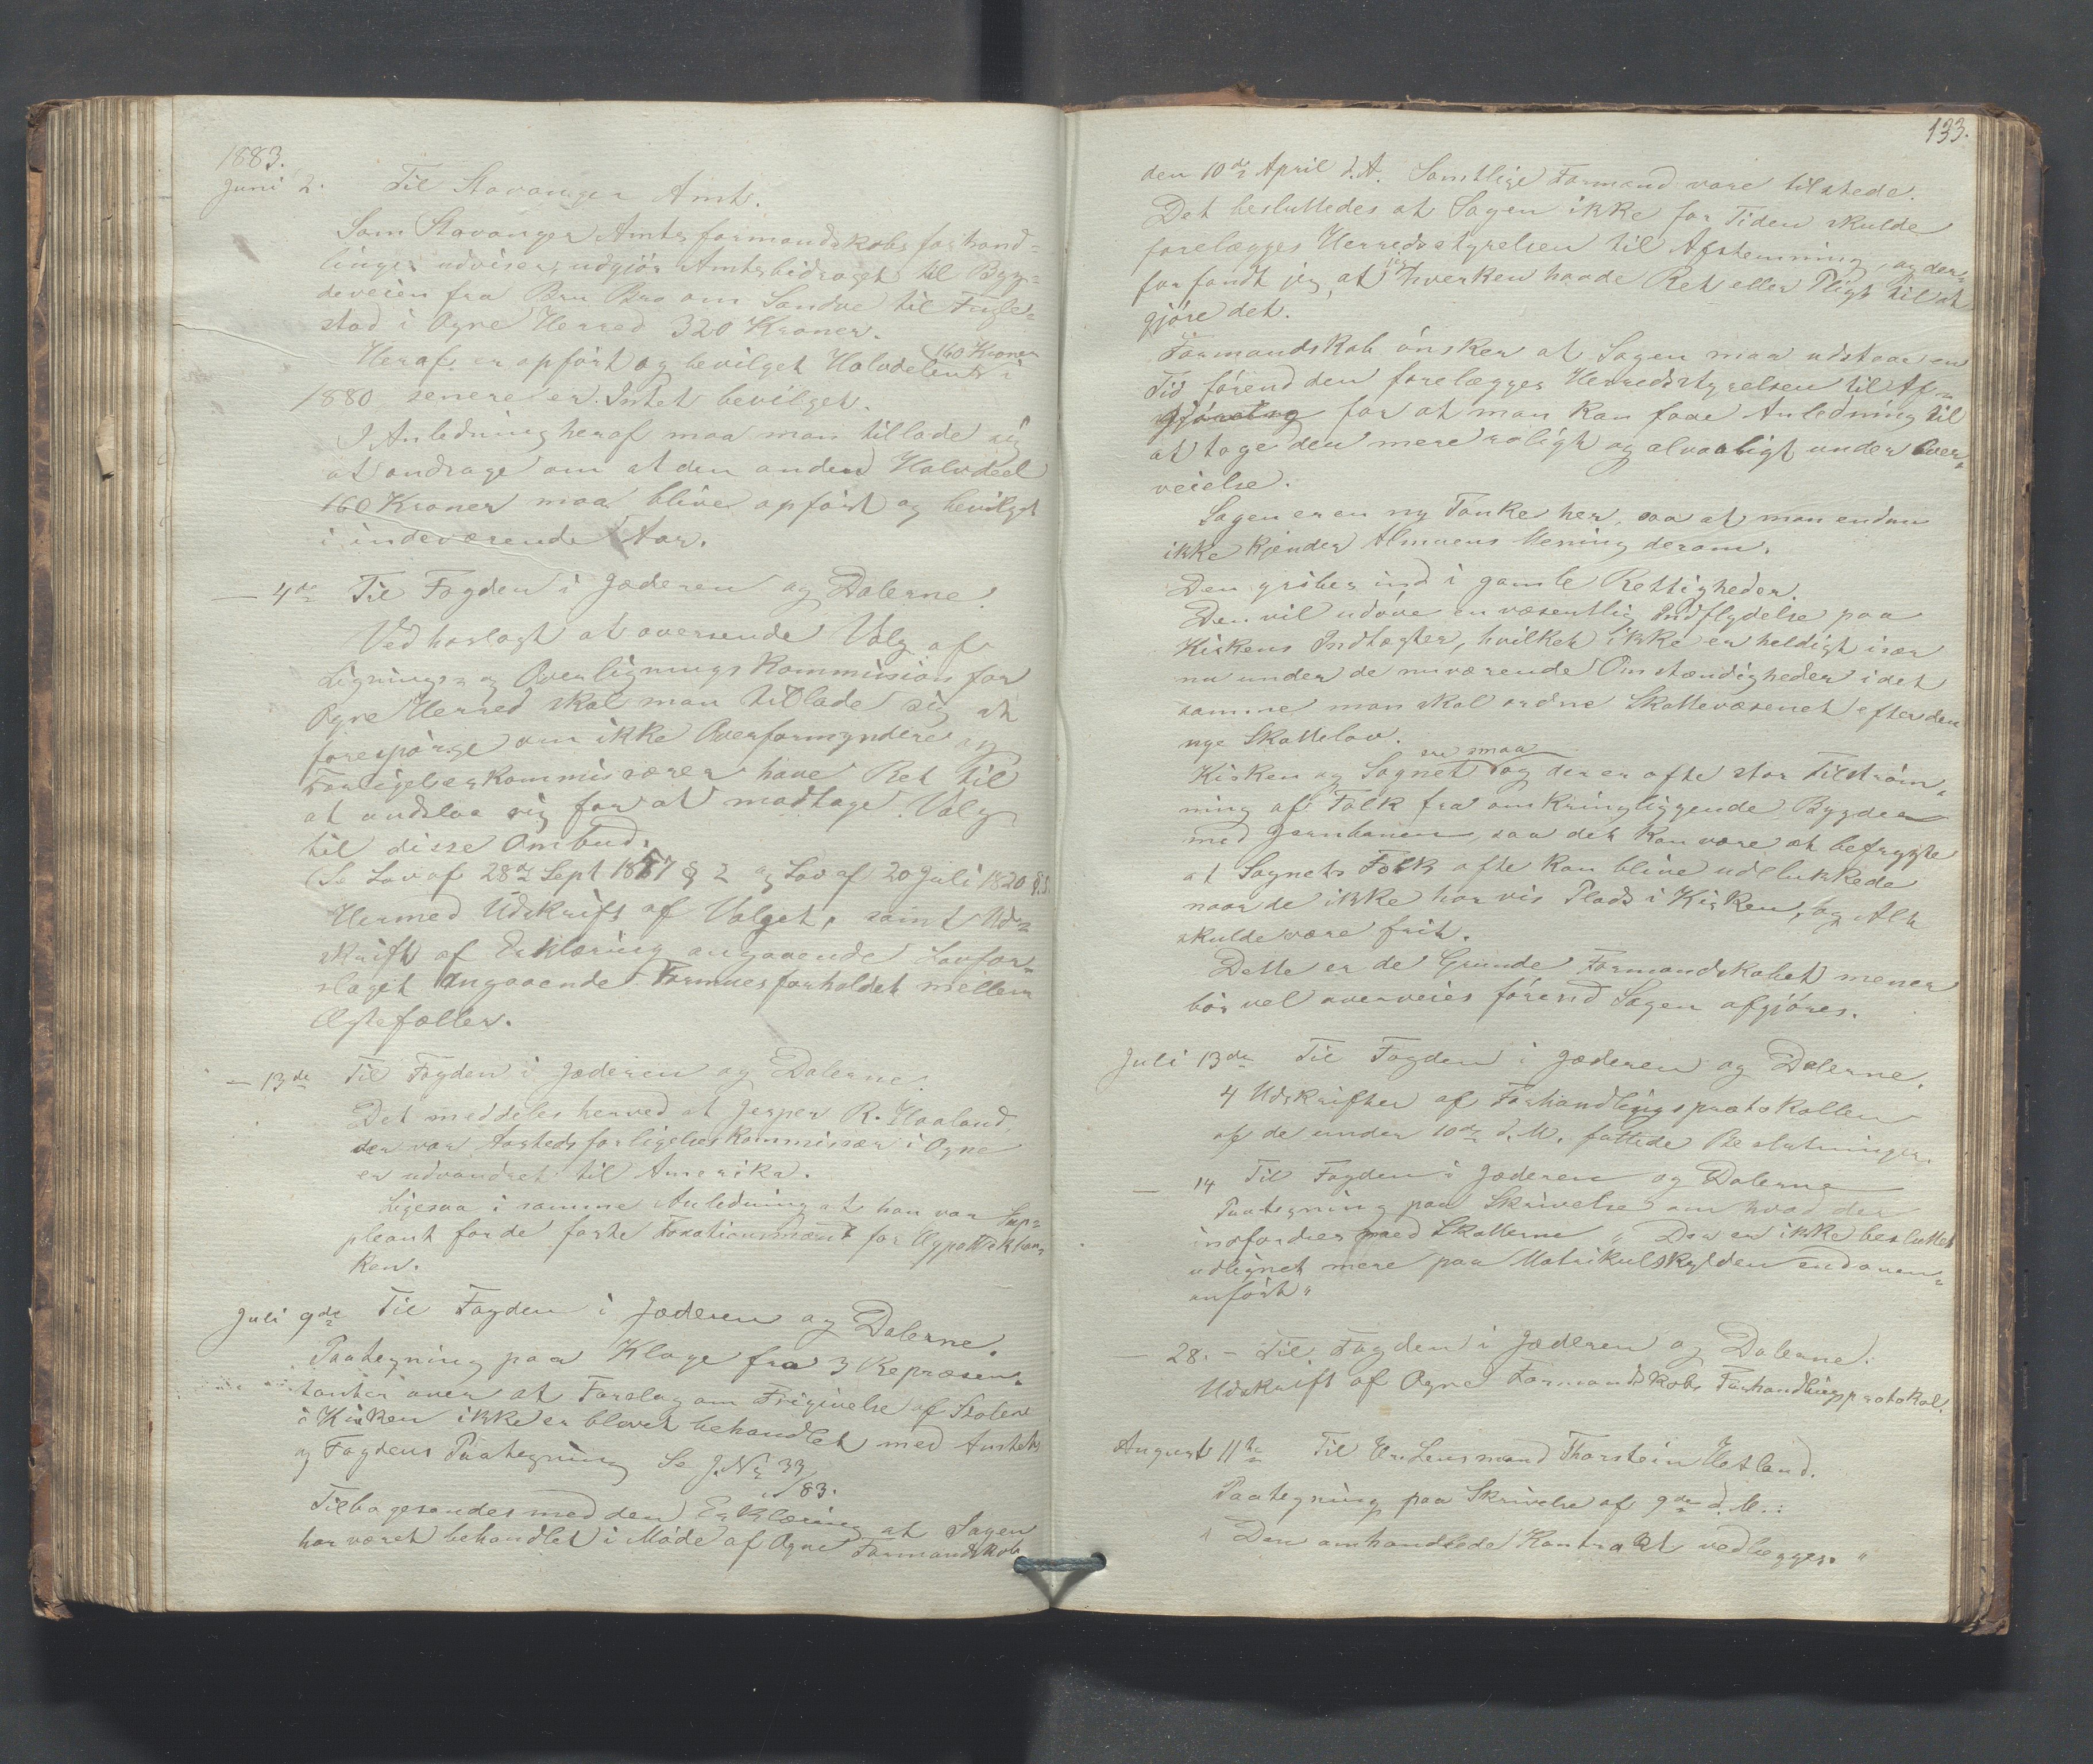 1883.
Juni 2. Til Stavanger Amt.
Som Stavanger Amtsformandskabs forhand-
linger udviser, udgjør Amtsbidraget til Byg-
deveien fra Bru Bro om Sandve til Fugle-
stad i Ogne Herred 320 Kroner.
Heraf er opført og bevilget Halvdelen 160 Kroner i
1880 senere er Intet bevilget.
I Anledning heraf maa man tillade sig
at andrage om at den anden Halvdeel
160 Kroner maa blive opført og bevilget
i indeværende Aar.
— 4de Til Fogden i Jæderen og Dalerne.
Vedhoslagt at oversende Valg af
Lignings- og Overligningskommission for
Ogne Herred skal man tillade sig at
forespørge om ikke Overformyndere og
Forligelseskommissærer have Ret til
at undslaa sig for at modtage Valg
til disse Ombud.
(Se Lov af 28de Sept 1857 § 2 og Lov af 20 Juli 1820 §.5.
Hermed Udskrift af Valget, samt Ud-
skrift af Erklæring angaaende Lovfor-
slaget angaaende Formuesforholdet mellem
Ægtefæller.
— 13de Til Fogden i Jæderen og Dalerne.
Det meddeles herved at Jesper R. Haaland,
der var Forligelseskommissær i Ogne
er udvandret til Amerika.
Ligesaa i samme Anledning at han var Sup-
pleant for de faste Taxationsmænd for Hypotekban-
ken.
Juli 9de Til Fogden i Jæderen og Dalerne.
Paategning paa Klage fra 3 Repræsen-
tanter over at Forslag om Frigivelse af Stolene
i Kirken ikke er blevet behandlet med Amtets
og Fogdens Paategning Se J.No 33/83.
Tilbagesendes med den Erklæring at Sagen
har været behandlet i Møde af Ogne Formandskab
133.
den 10de April d.A. Samtlige Formænd vare tilstede.
Det besluttedes at Sagen ikke for Tiden skulde
forelægges Herredsstyrelsen til Afstemning, og der-
for fandt jeg, at jeg hverken havde Ret eller Pligt til at
gjøre det.
Formandskab ønsker at Sagen maa udstaae en
Tid førend den forelægges Herredsstyrelsen til Af-
gjørelse for at man kan faae Anledning til
at tage den mere roligt og alvorligt under Over-
veielse.
Sagen er en ny Tanke her, saa at man endnu
ikke kjender Almuens Mening derom.
Den griber ind i gamle Rettigheder.
Den vil udøve en væsentlig Indflydelse paa
Kirkens Indtægter, hvilket ikke er heldigt især
nu under de nuværende Omstændigheder idet
samme man skal ordne Skattevæsenet efter den
nye Skattelov.
Kirken og Sognet ere smaa og der er ofte stor Tilstrøm-
ning af Folk fra omkringliggende Bygder
med Jernbanen, saa det kan være at befrygte
at Sognets Folk ofte kan blive udelukkede
naar de ikke har vis Plads i Kirken, og Alt
skulde være frit.
Dette er de Grunde Formandskabet mener
bør vel overveies førend Sagen afgjøres.
Juli 13de Til Fogden i Jæderen og Dalerne.
4 Udskrifter af Forhandlingsprotokollen
af de under 10de d.M. fattede Beslutninger.
— 14 Til Fogden i Jæderen og Dalerne
Paategning paa Skrivelse om hvad der
indfordres med Skatterne „Der er ikke besluttet
udlignet mere paa Matrikulskylden end oven-
anført"
— 28. - Til Fogden i Jæderen og Dalerne.
Udskrift af Ogne Formandskabs Forhandlingsprotokol.
August 11te Til Hr. Lensmand Thorstein Hetland.
Paategning paa Skrivelse af 9de d.M.:
„Den omhandlede Kontrakt vedlægges."